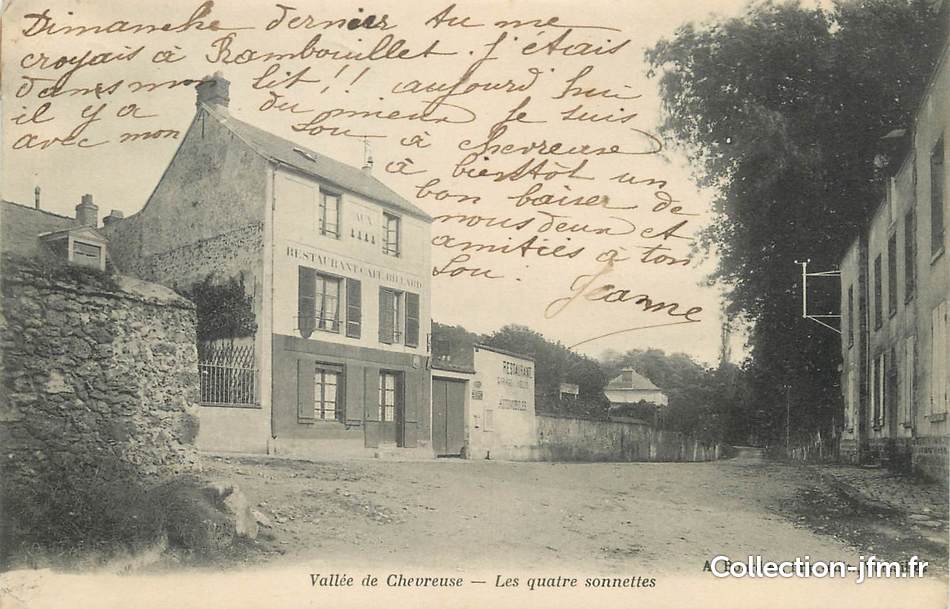 Dimanche dernier tu me
croyais à Rambouillet. j'étais
dans mon lit!! aujourd'hui
il y a du mieux je suis
avec mon Lou à chevreuse
à bientôt un
bon baiser de
nous deux et
amitiés à ton
Lou.
Jeanne
AUX
RESTAURANT CAFÉ BILLARD
RESTAURANT
GARAGE POUR
AUTOMOBILES
Vallée de Chevreuse — Les quatre sonnettes
Collection-jfm.fr